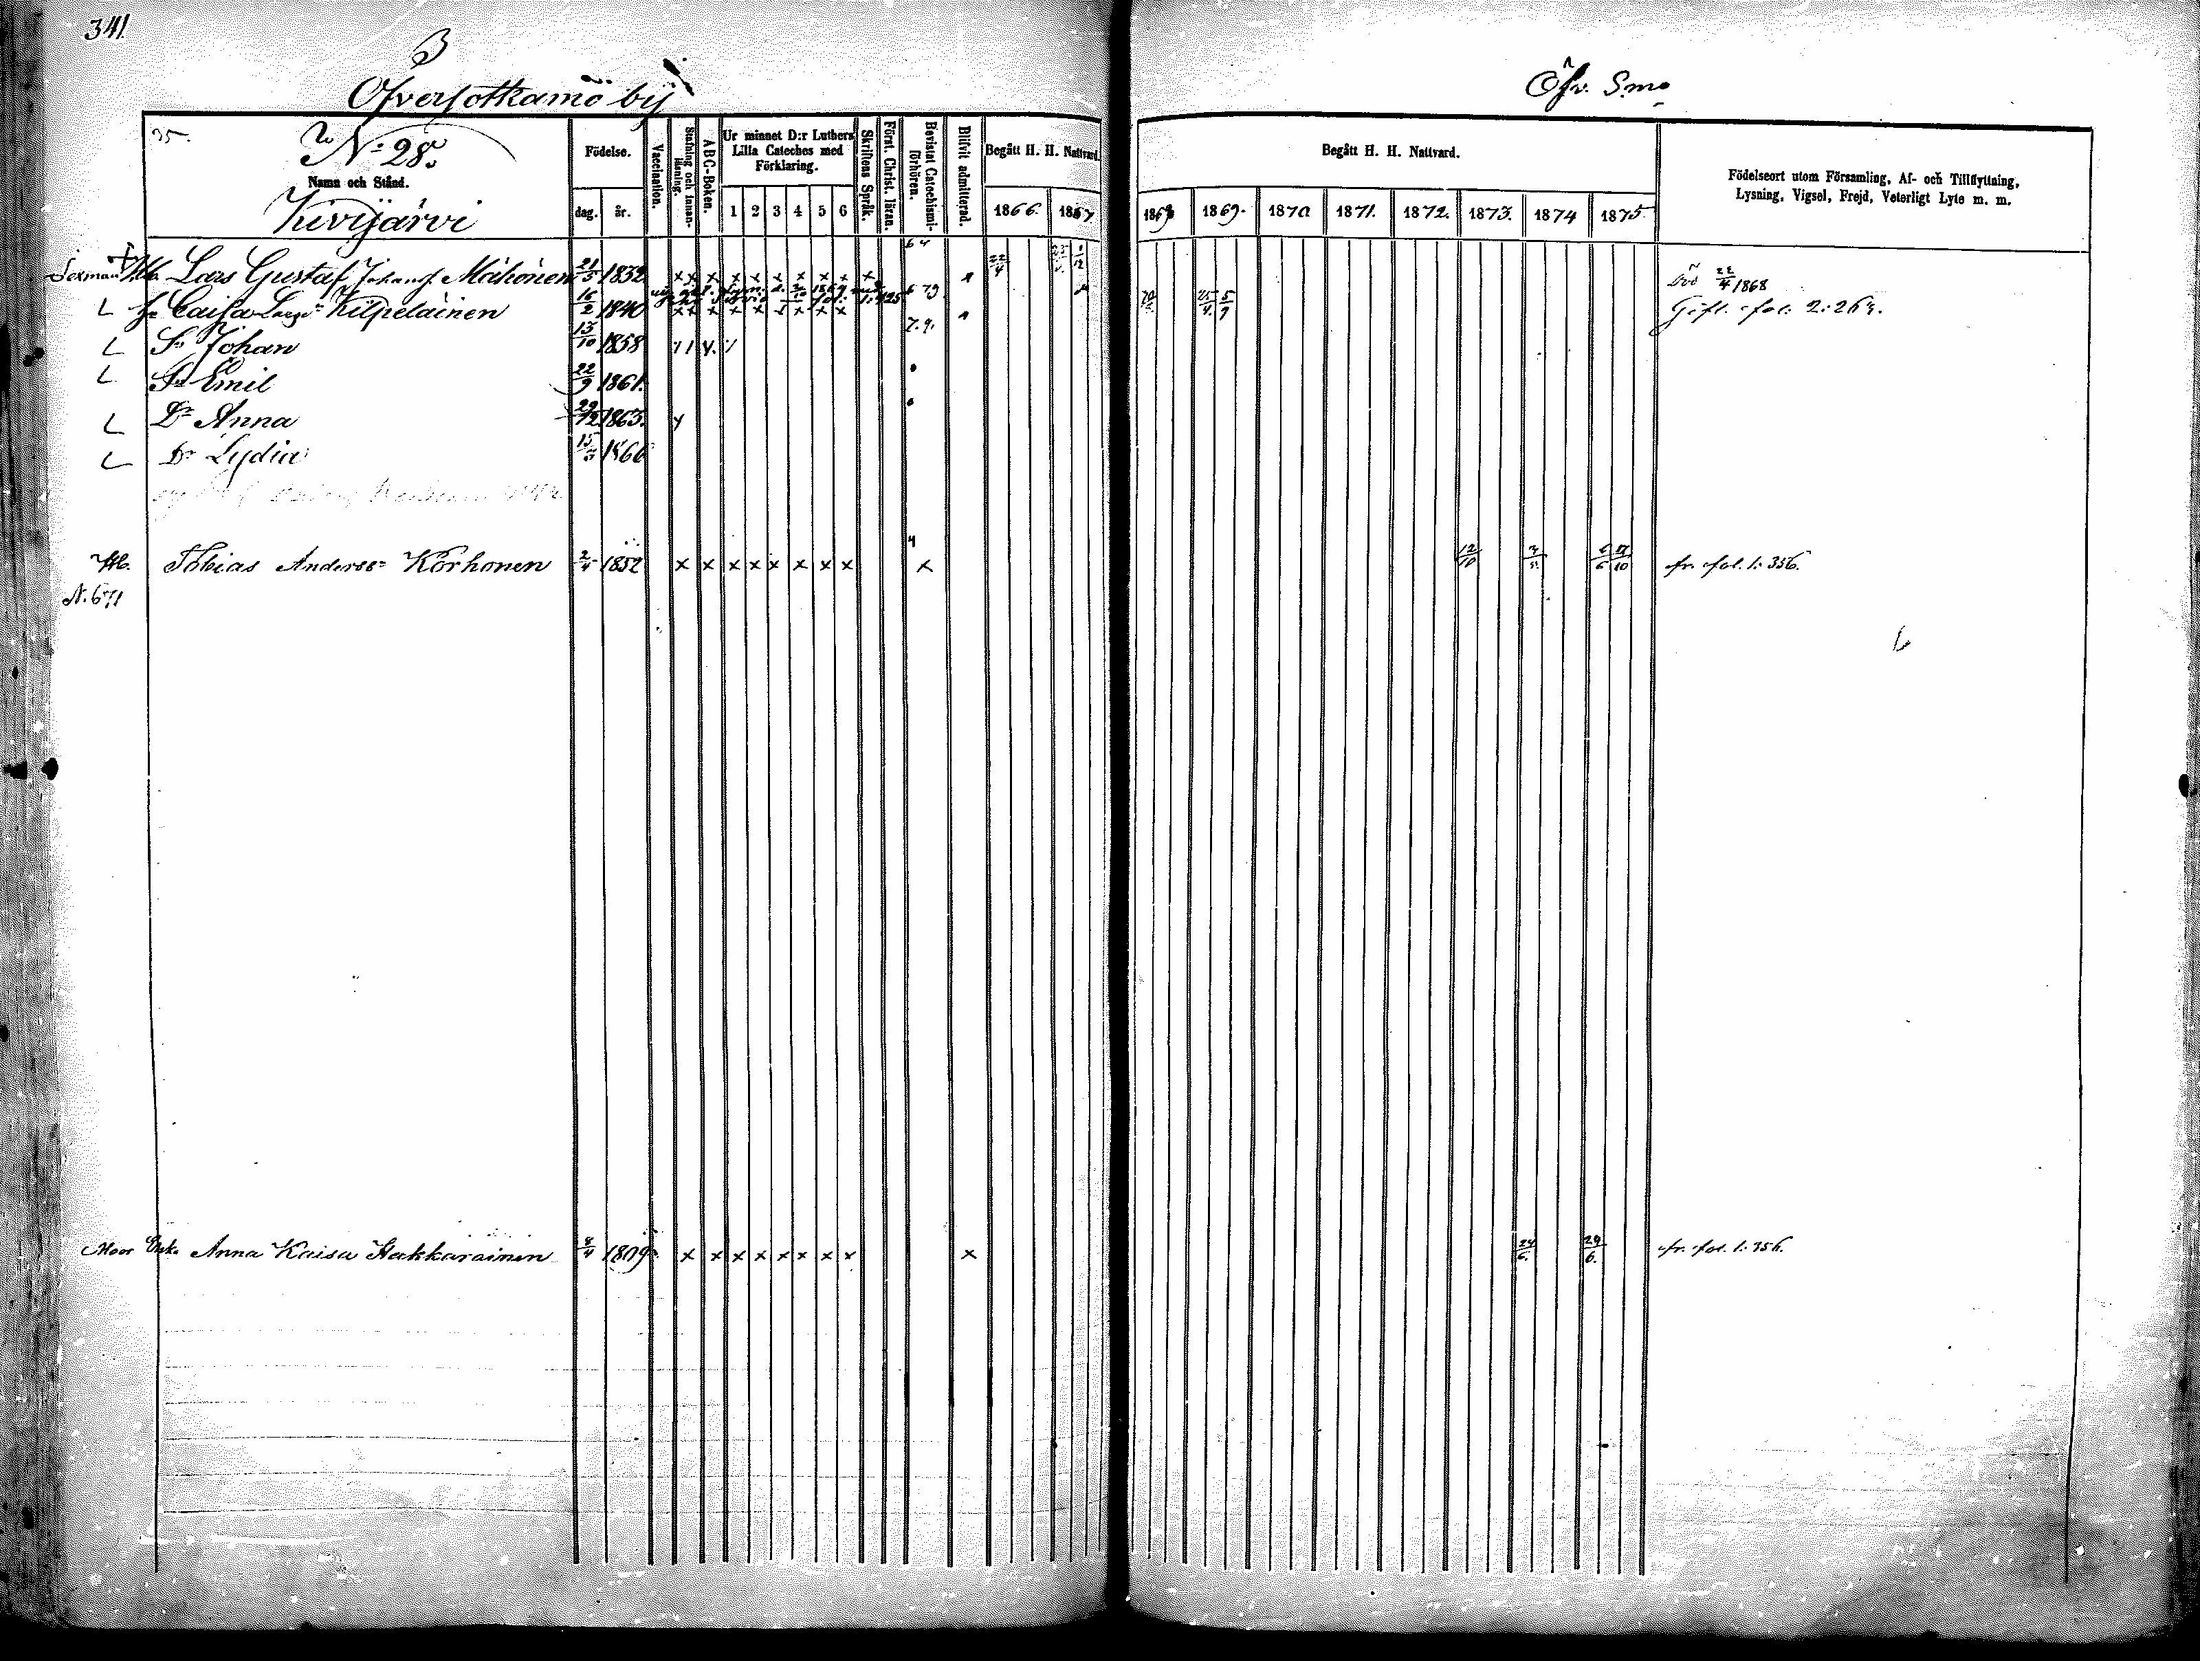 341.
3
Öfversotkamo by
Öfv. S.mo
35.
No 28.
Namn och Stånd.
Kivijärvi
Födelse.
dag. år.
Vaccination.
Stafning och Innanläsning.
A B C-Boken.
Ur minnet D:r Luthers Lilla Cateches med Förklaring.
1 2 3 4 5 6
Skriftens Språk.
Först. Christ. läran.
Bevistat Catechismi-förhören.
Blifvit admitterad.
Begått H. H. Nattvard.
1866. 1867.
Begått H. H. Nattvard.
1868 1869. 1870 1871. 1872. 1873. 1874 1875.
Födelseort utom Församling, Af- och Tillflyttning,
Lysning, Vigsel, Frejd, Veterligt Lyte m. m.
Sexman Lars Gustaf Johansf. Mähönen 21/5 1832 x x x x x x x x x x 22/4 Död 22/4 1868
hu Caisa Larsd. Kilpeläinen 16/2 1840 x x x x x x x x 25/4 5/9 Gift. fol. 2:264.
Sn Johan 13/10 1858
Sn Emil 22/9 1861.
Dr Anna 29/12 1863.
Dr Lydia 15/3 1866
Hb. Tobias Anderss. Korhonen 2/4 1852 x x x x x x x x x 12/10 6/6 17/10 fr. fol. 1:356.
N. 671
Moor Enk. Anna Kaisa Hakkarainen 8/4 1809 x x x x x x x x x 24/6. 29/6. fr. fol. 1:356.